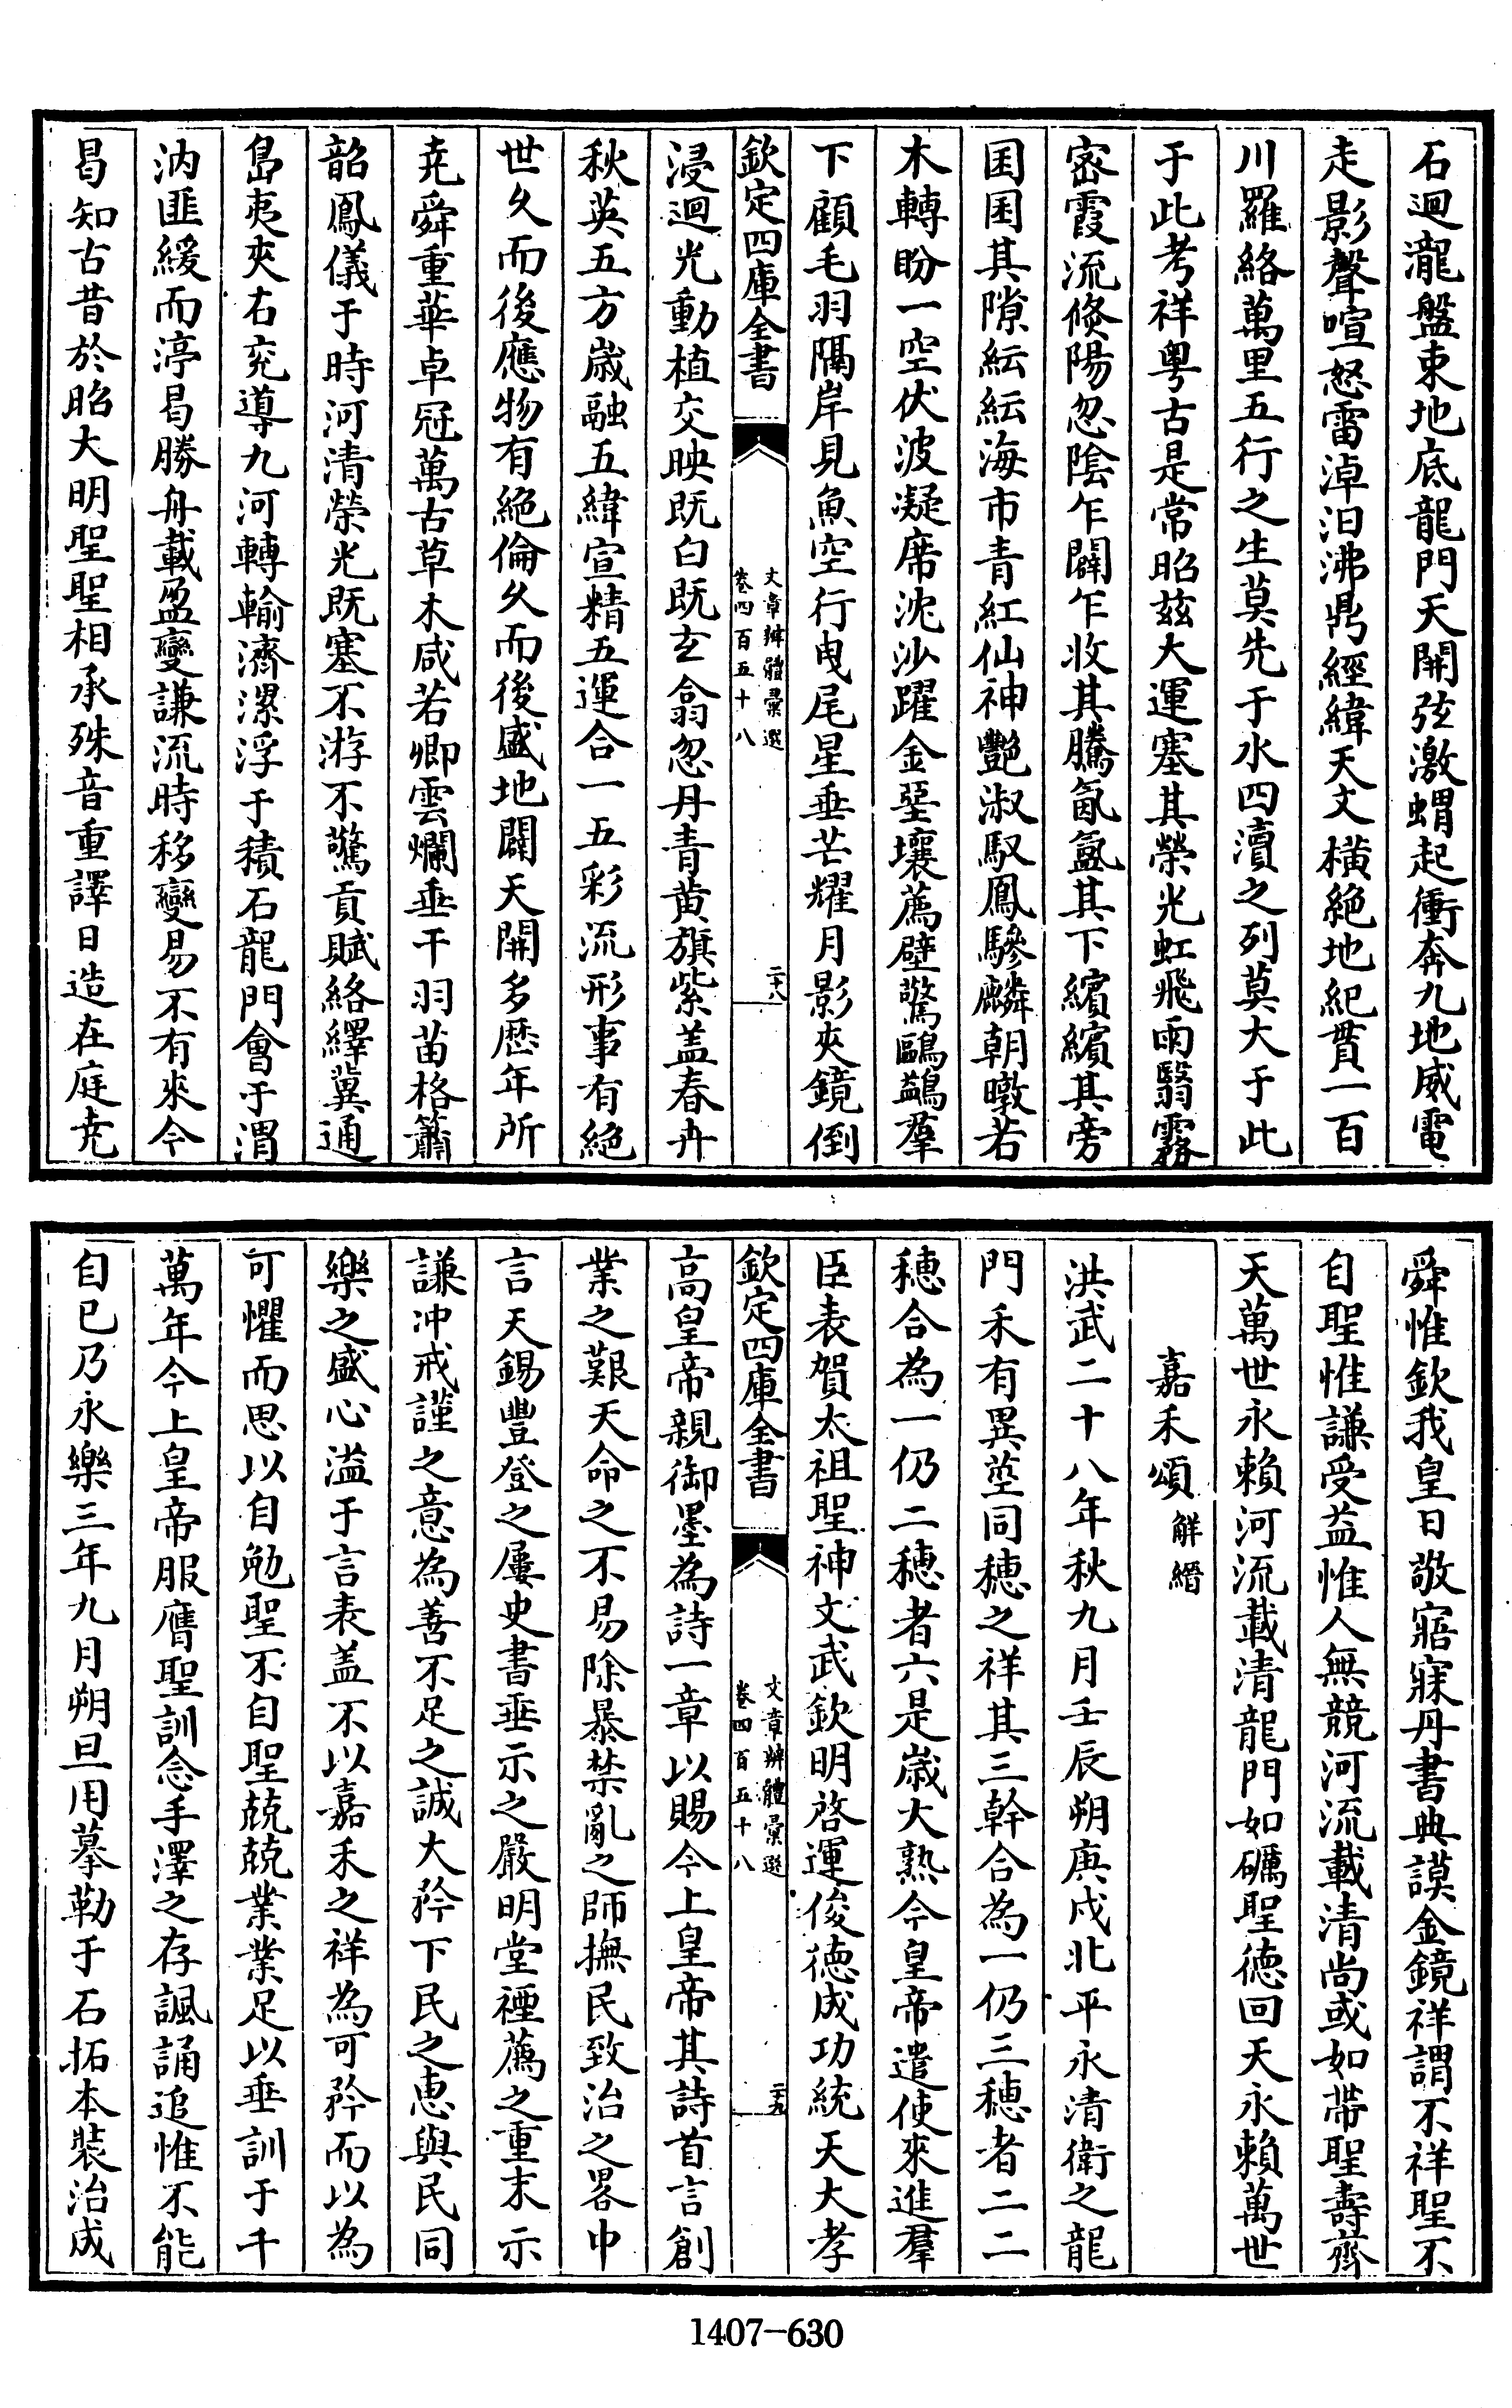 石迴瀧盤束地底龍門天開弦激蝟起衝奔九地威電
走影聲喧怒雷淖汩沸鼎經緯天文橫絕地紀貫一百
川羅絡萬里五行之生莫先于水四瀆之列莫大于此
于此考祥粤古是常昭兹大運塞其榮光虹飛雨翳霧
密霞流倏陽忽陰乍闢乍收其騰氤氲其下繽繽其旁
囷囷其隙紜紜海市青紅仙神艷淑馭鳳驂麟朝暾若
木轉盼一空伏波凝席沈沙躍金堊壤薦璧驚鷗鷁羣
下顧毛羽隔岸見魚空行曳尾星垂芒耀月影夾鏡倒
欽定四庫全書
文章辨體彙選
卷四百五十八
二十八
浸迴光動植交映既白既玄翕忽丹青黄旗紫盖春卉
秋英五方嵗融五緯宣精五運合一五彩流形事有絶
世乆而後應物有絶倫乆而後盛地闢天開多歴年所
堯舜重華卓冠萬古草木咸若卿雲爛垂干羽苗格簫
韶鳳儀于時河清榮光既塞不游不驚貢賦絡繹冀通
島夷夾右兖導九河轉輸濟漯浮于積石龍門會于渭
汭匪緩而渟曷勝舟載盈變謙流時移變易不有來今
曷知古昔於昭大明聖聖相承殊音重譯日造在庭堯
舜惟欽我皇日敬寤寐丹書典謨金鏡祥謂不祥聖不
自聖惟謙受益惟人無競河流載清尚或如帶聖壽齊
天萬世永頼河流載清龍門如礪聖德回天永頼萬世
嘉禾頌 解縉
洪武二十八年秋九月壬辰朔庚戌北平永清衛之龍
門禾有異莖同穗之祥其三幹合為一仍三穗者二二
穗合為一仍二穗者六是嵗大熟今皇帝遣使來進羣
臣表賀太祖聖神文武欽明啓運俊德成功統天大孝
欽定四庫全書
文章辨體彙選
卷四百五十八
二十九
高皇帝親御墨為詩一章以賜今上皇帝其詩首言創
業之艱天命之不易除暴禁亂之師撫民致治之畧中
言天錫豐登之屢史書垂示之嚴明堂禋薦之重末示
謙冲戒謹之意為善不足之誠大矜下民之恵與民同
樂之盛心溢于言表盖不以嘉禾之祥為可矜而以為
可懼而思以自勉聖不自聖兢兢業業足以垂訓于千
萬年今上皇帝服膺聖訓念手澤之存諷誦追惟不能
自已乃永樂三年九月朔旦用摹勒于石拓本裝治成
1407-630